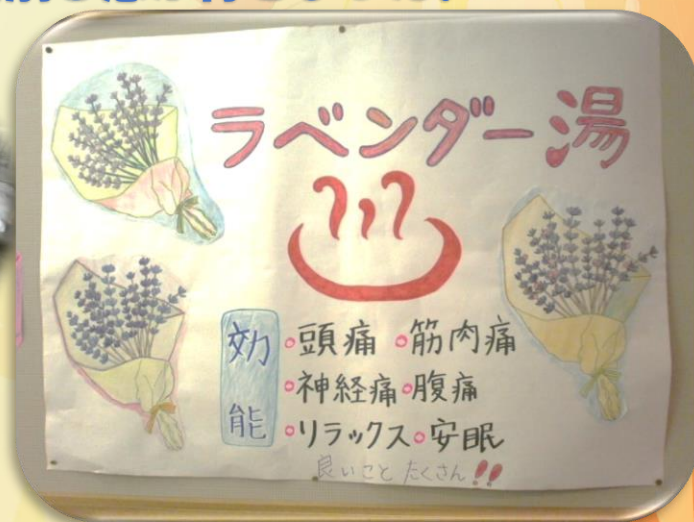 ラベンダー湯
効能
・頭痛 ・筋肉痛
・神経痛・腹痛
・リラックス・安眠
良いこと たくさん!!